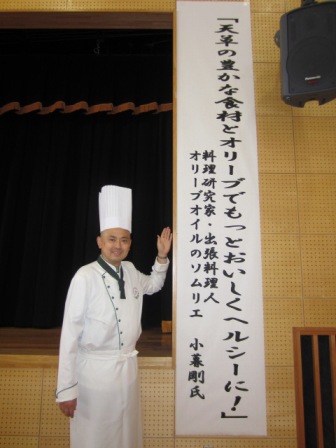 「天草の豊かな食材とオリーブでもっとおいしくヘルシーに！」
料理研究家・出張料理人
オリーブオイルのソムリエ
小暮剛氏
Panasonic